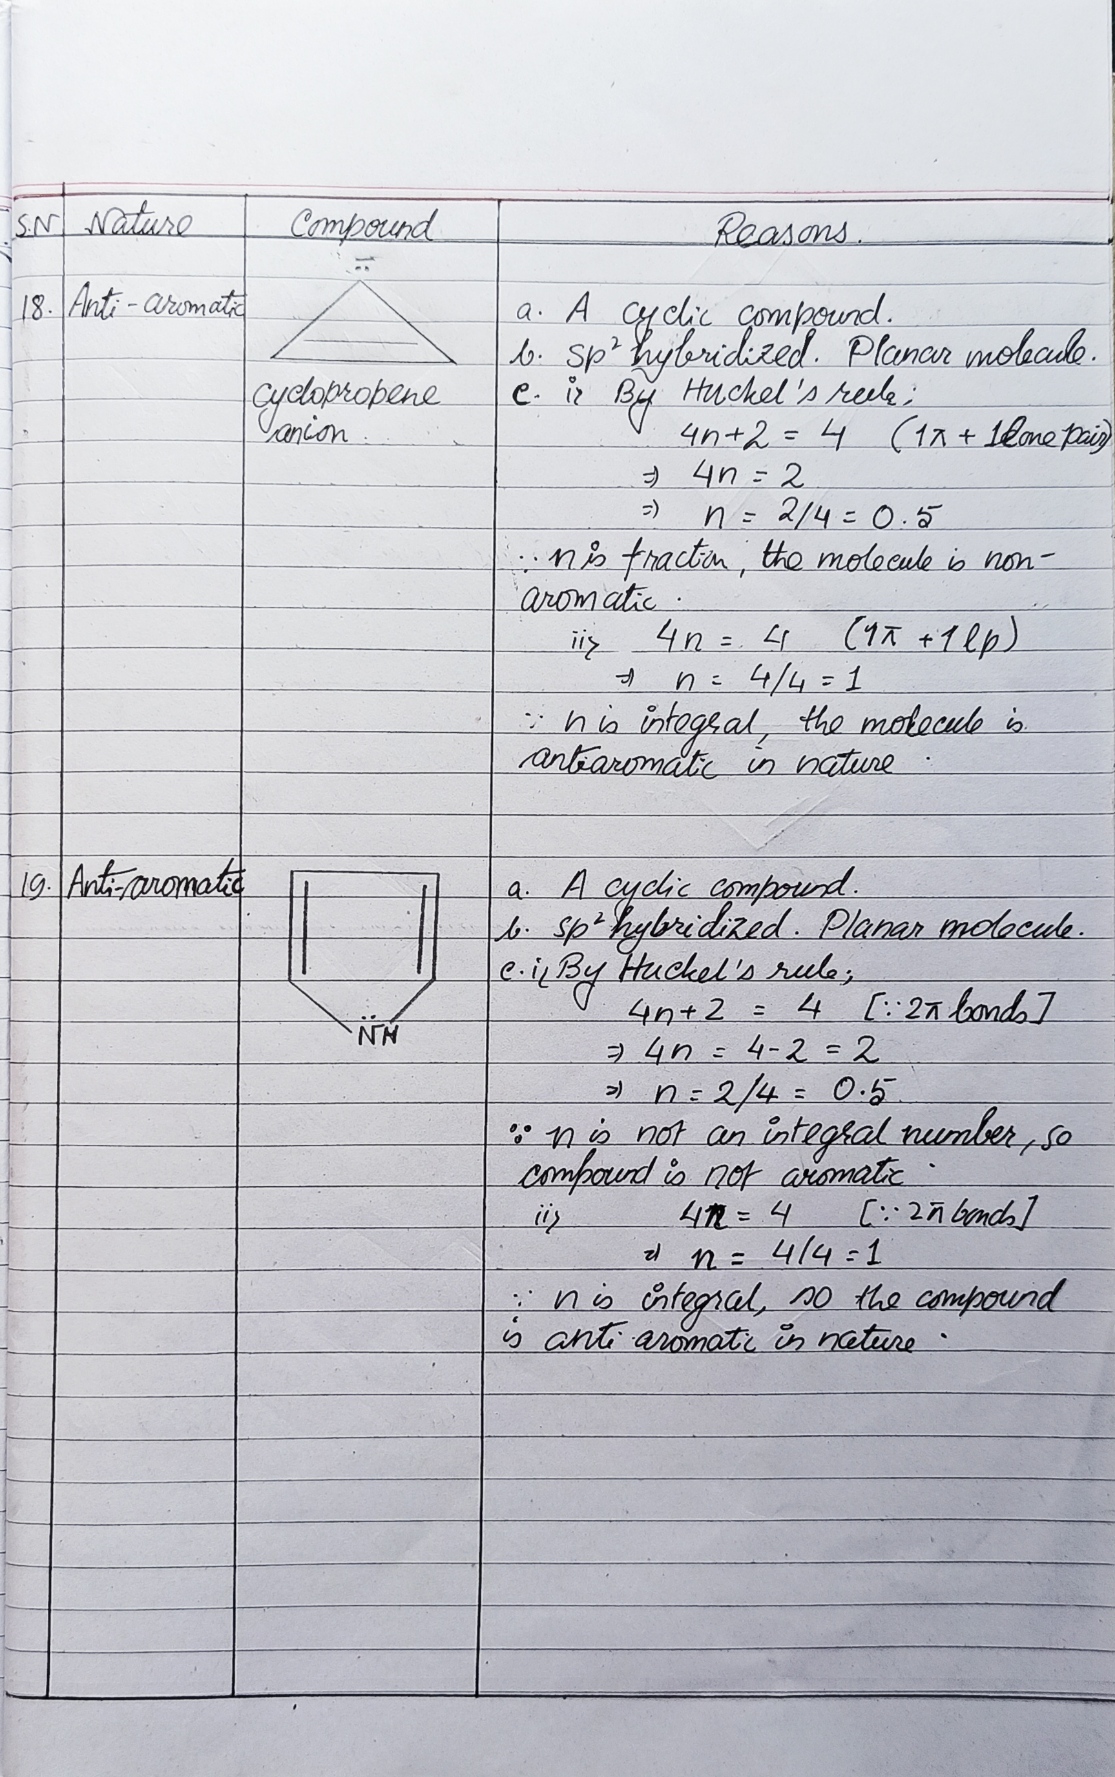 S.N Nature Compound Reasons.
18. Anti-aromatic
cyclopropene
anion.
a. A cyclic compound.
b. sp² hybridized. Planar molecule.
c. i> By Huckel's rule;
4n+2 = 4 (1π + 1 lone pair)
⇒ 4n = 2
⇒ n = 2/4 = 0.5
∵ n is fraction, the molecule is non-
aromatic.
ii> 4n = 4 (1π + 1 lp)
⇒ n = 4/4 = 1
∵ n is integral, the molecule is
antiaromatic in nature.
19. Anti-aromatic
N̈H
a. A cyclic compound.
b. sp² hybridized. Planar molecule.
c. i> By Huckel's rule;
4n+2 = 4 [∵ 2π bonds]
⇒ 4n = 4-2 = 2
⇒ n = 2/4 = 0.5
∵ n is not an integral number, so
compound is not aromatic.
ii> 4n = 4 [∵ 2π bonds]
⇒ n = 4/4 = 1
∵ n is integral, so the compound
is anti aromatic in nature.